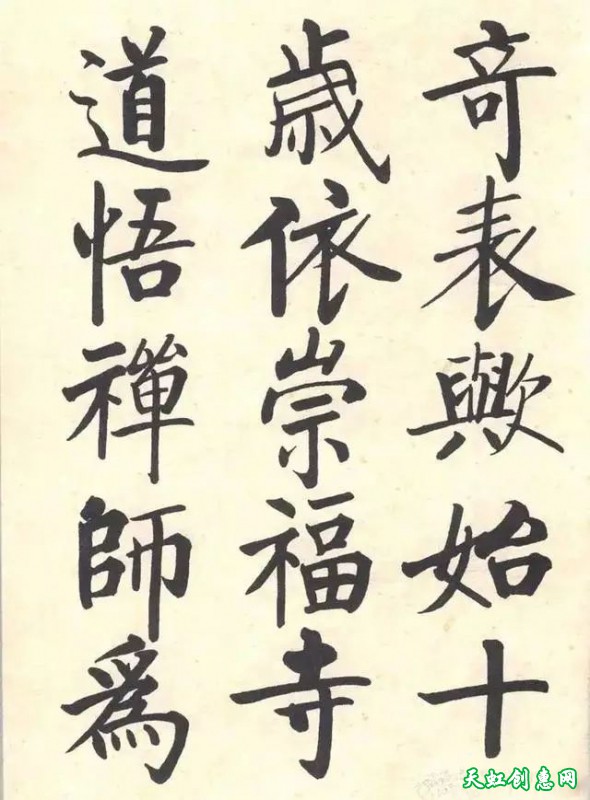 奇表歟始十
歳依崇福寺
道悟禪師爲
天虹创意网